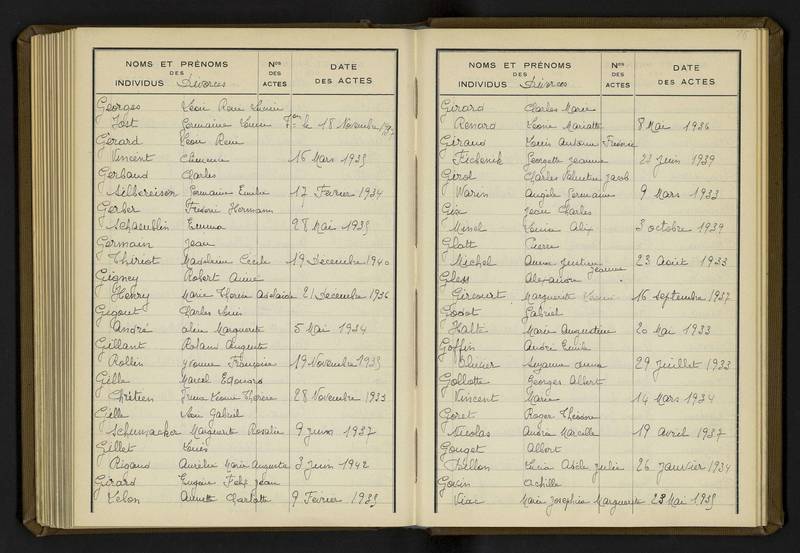 NOMS ET PRÉNOMS Nos DATE
DES DES DES ACTES
INDIVIDUS Divorces ACTES
Georges Léon René Lucien
Jost Germaine Louise 18 Novembre
Gérard Léon René
Vincent Clémence 16 Mars 1935
Gerbaud Charles
Silbereisen Germaine Emilie 17 Fevrier 1934
Gerber Frédéric Hermann
Schaeublin Emma 28 Mai 1935
Germain Jean
Thiriot Madeleine Cécile 19 Decembre 1940
Gigney Robert Aimé
Henry Marie Thérèse Adelaide 21 Decembre 1936
Gigout Charles Louis
André Marguerite 5 Mai 1934
Gillant Roland Auguste
Rollin Yvonne Françoise 19 Novembre 1935
Gille Marcel Edouard
Chrétien Irma Léonie Thérèse 28 Novembre 1933
Gille Léon Gabriel
Schumacker Marguerite Rosalie 9 Juin 1937
Gillet Louis
Rigaud Aurélie Marie Augusta 3 Juin 1942
Girard Eugène Felix Jean
Velon Annette Charlotte 9 Fevrier 1935
NOMS ET PRÉNOMS Nos DATE
DES DES DES ACTES
INDIVIDUS Divorces ACTES
Girard Charles Marie
Renard Léonie Mariette 8 Mai 1936
Giraud Louis Antoine
Georgette Jeanne 23 Juin 1939
Girot Charles Valentin Jacob
Warin Angèle Germaine 9 Mars 1933
Gix Jean Charles
Minel Louise Alix 3 octobre 1939
Glatt Pierre
Michel Anna Justine Jeanne 23 Août 1933
Gless Alexandre
Gircourt Marguerite 16 septembre 1937
Godot Gabriel
Halté Marie Augustine 20 Mai 1933
Goffin André Emile
Suzanne 29 Juillet 1933
Gollotte Georges Albert
Vincent Marie 14 Mars 1934
Goret Roger Théodore
Nicolas Andrée Marcelle 19 Avril 1937
Gouget Albert
Lucie Adèle Julie 26 Janvier 1934
Govin Achille
Viac Marie Josephine Marguerite 23 Mai 1935